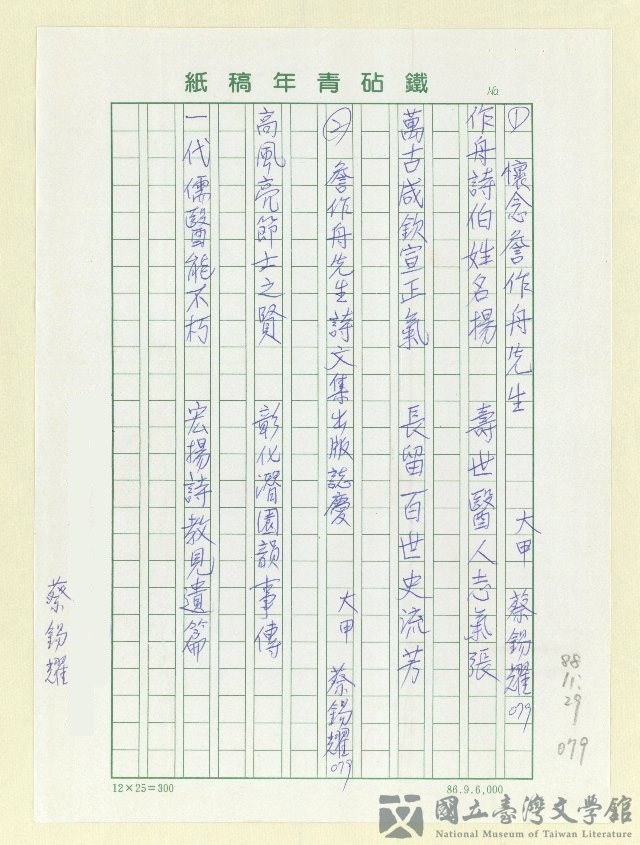 鐵砧青年稿紙
No
① 懷念詹作舟先生 大甲 蔡錫耀 079
作舟詩伯姓名揚 壽世醫人志氣張
萬古咸欽宣正氣 長留百世史流芳
㊁ 詹作舟先生詩文集出版誌慶 大甲 蔡錫耀 079
高風亮節士之賢 彰化潛園韻事傳
一代儒醫能不朽 宏揚詩教見遺篇
蔡錫耀
88.11.29
079
12×25=300
86.9.6,000
國立臺灣文學館
National Museum of Taiwan Literature